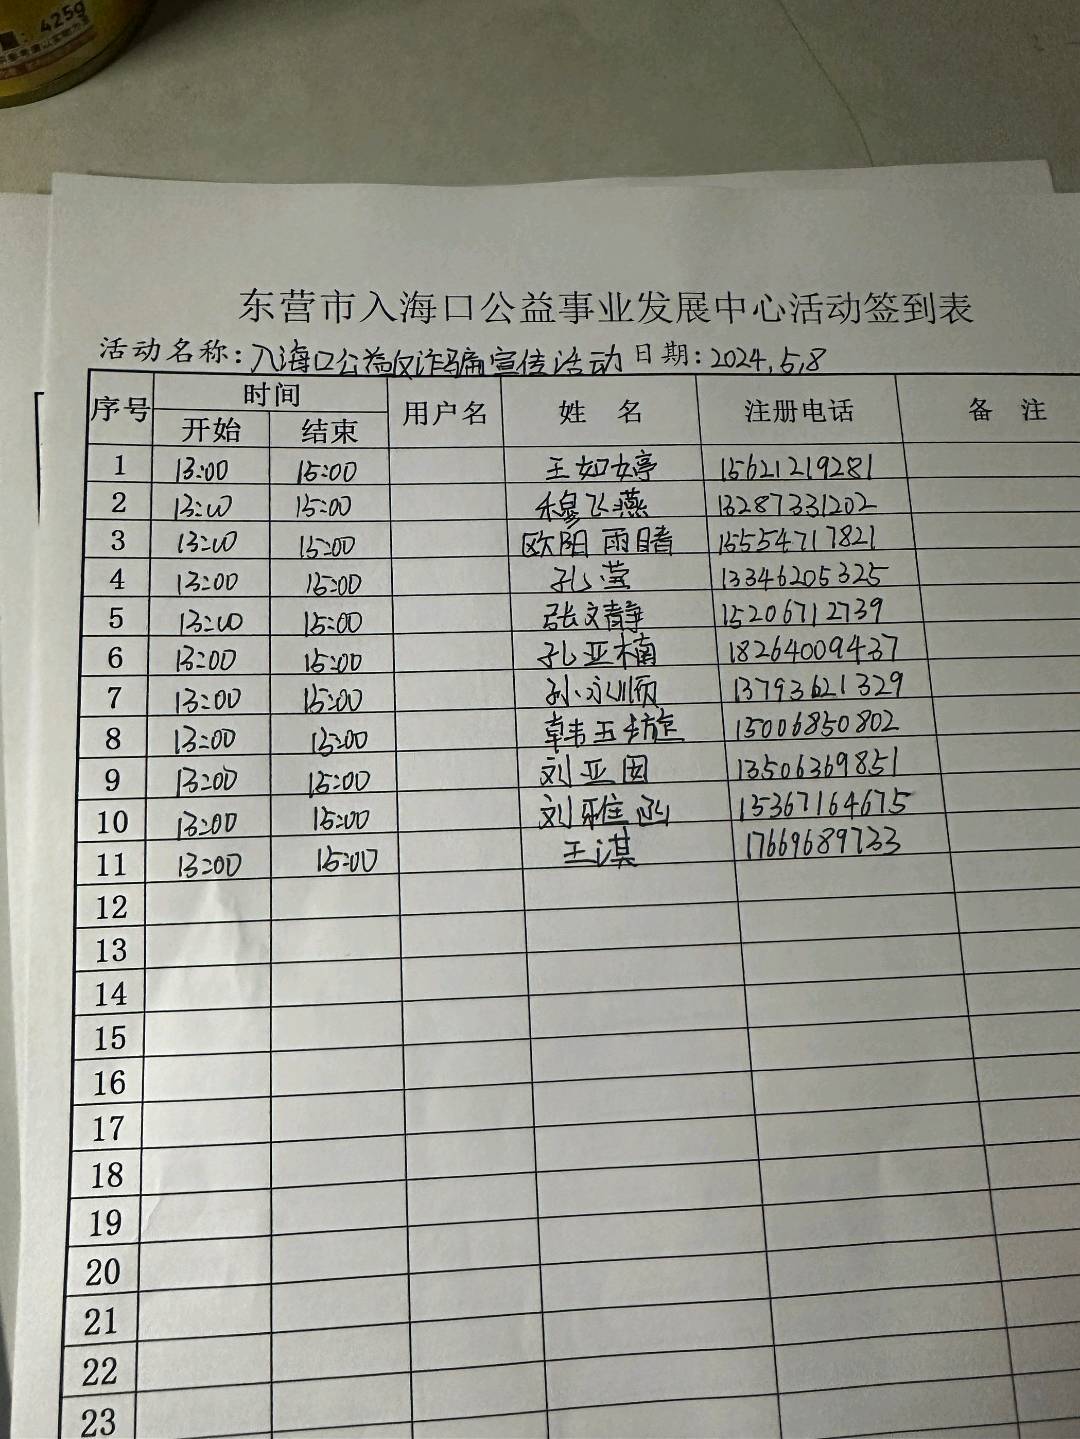 425g
东营市入海口公益事业发展中心活动签到表
活动名称:入海口公益反诈骗宣传活动 日期:2024.5.8
序号 时间 用户名 姓名 注册电话 备注
开始 结束
1 13:00 15:00 王如婷 15621219281
2 13:00 15:00 穆飞燕 13287331202
3 13:00 15:00 欧阳雨晴 15554717821
4 13:00 15:00 孔莹 13346205325
5 13:00 15:00 张文静 15206712739
6 13:00 15:00 孔亚楠 18264009437
7 13:00 15:00 孙永顺 13793621329
8 13:00 15:00 韩玉璇 15006850802
9 13:00 15:00 刘亚囡 13506369851
10 13:00 15:00 刘雅函 15367164675
11 13:00 15:00 王淇 17669689733
12
13
14
15
16
17
18
19
20
21
22
23